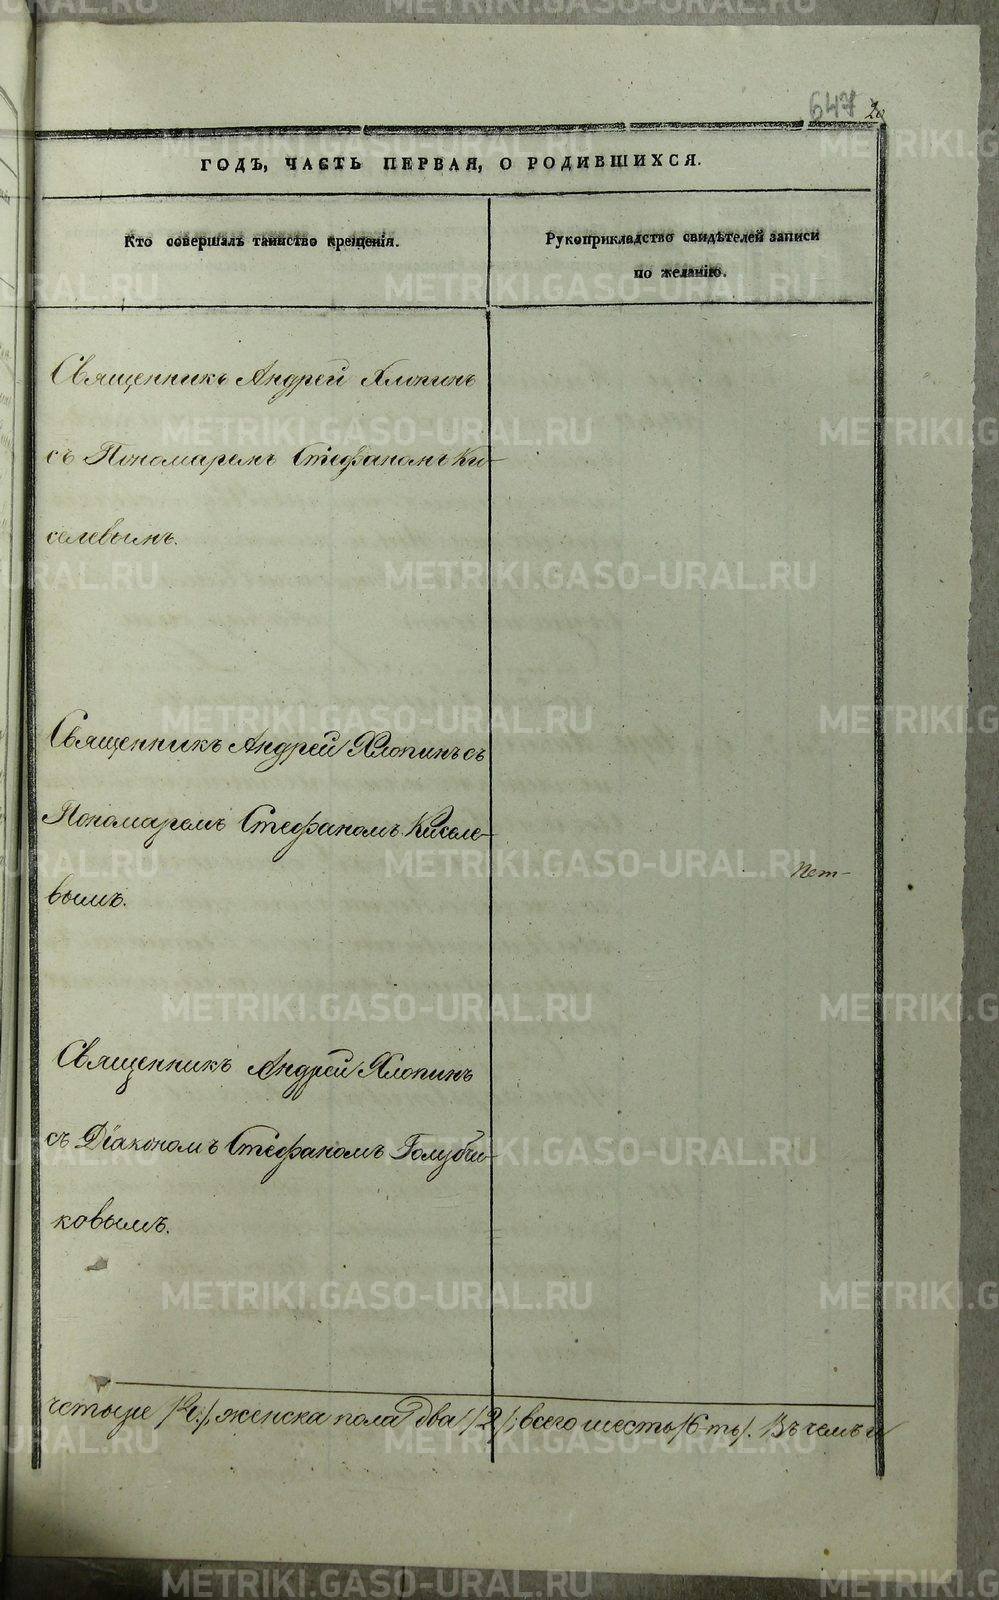 647 20
ГОДЪ, ЧАСТЬ ПЕРВАЯ, О РОДИВШИХСЯ.
Кто совершалъ таинство крещенія.
Рукоприкладство свидѣтелей записи
по желанію.
Священникъ Андрей Хлопинъ
съ Пономаремъ Стефаномъ Ки-
селевымъ.
Священникъ Андрей Хлопинъ съ
Пономаремъ Стефаномъ Киселе-
вымъ.
Священникъ Андрей Хлопинъ
съ Діакономъ Стефаномъ Голубчи-
ковымъ.
четыре /4./, женска пола два /2/; всего шесть /6-ть/. Въ чемъ и
METRIKI.GASO-URAL.RU